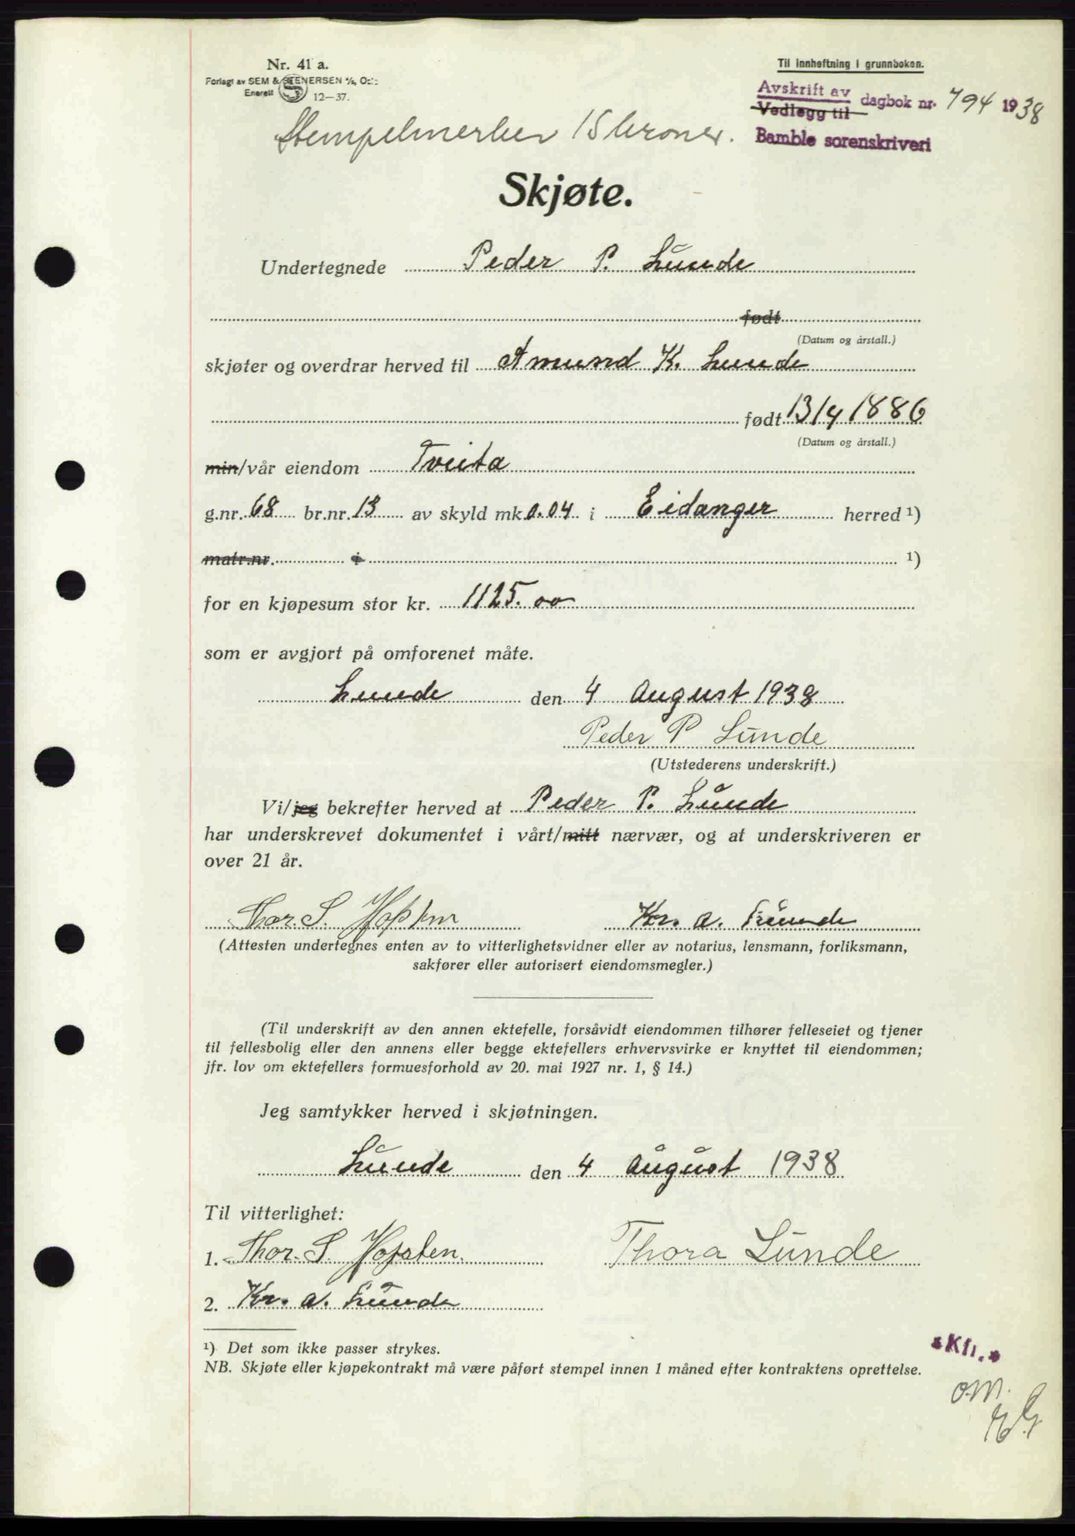 Nr. 41 a.
Forlagt av SEM & STENERSEN A/S, Oslo
Enerett 12-37.
Til innheftning i grunnboken.
Avskrift av
Vedlegg til dagbok nr. 794 1938
Bamble sorenskriveri
Stempelmerker 15 kroner.
Skjøte.
Undertegnede Peder P. Lunde
født
(Datum og årstall.)
skjøter og overdrar herved til Amund K. Lunde
født 13/4 1886
(Datum og årstall.)
min/vår eiendom Tveita
g.nr. 68 br.nr. 13 av skyld mk 0.04 i Eidanger herred ¹)
matr.nr. i ¹)
for en kjøpesum stor kr. 1125.00
som er avgjort på omforenet måte.
Lunde den 4 August 1938
Peder P Lunde
(Utstederens underskrift.)
Vi/jeg bekrefter herved at Peder P. Lunde
har underskrevet dokumentet i vårt/mitt nærvær, og at underskriveren er
over 21 år.
Thor S. Kr. A. Lunde
(Attesten undertegnes enten av to vitterlighetsvidner eller av notarius, lensmann, forliksmann,
sakfører eller autorisert eiendomsmegler.)
(Til underskrift av den annen ektefelle, forsåvidt eiendommen tilhører felleseiet og tjener
til fellesbolig eller den annens eller begge ektefellers erhvervsvirke er knyttet til eiendommen;
jfr. lov om ektefellers formuesforhold av 20. mai 1927 nr. 1, § 14.)
Jeg samtykker herved i skjøtningen.
Lunde den 4 August 1938
Til vitterlighet:
1. Thor S. Thora Lunde
2. Kr. A. Lunde
¹) Det som ikke passer strykes.
NB. Skjøte eller kjøpekontrakt må være påført stempel innen 1 måned efter kontraktens oprettelse.